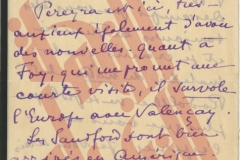 Pereyra est ici, très
anxieux également d'avoir
des nouvelles. Quant à
Foy, qui me promet une
courte visite, il survole
l'Europe avec Valençay.
Les Sandford sont bien
arrivés en Amérique